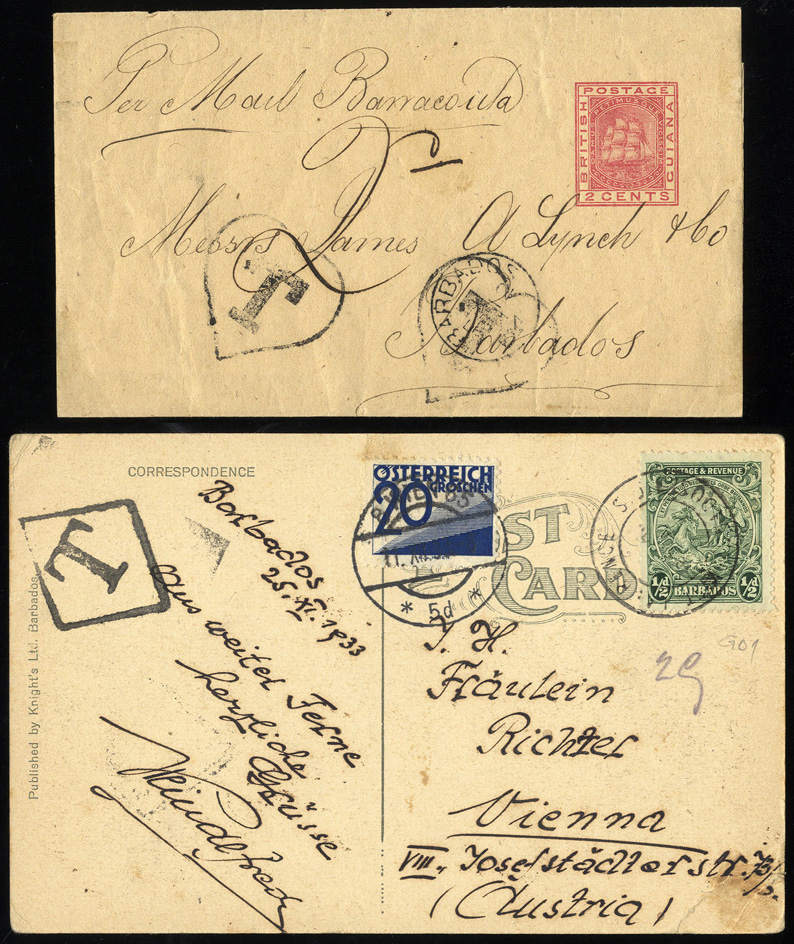 Per Mail Barracouta
BRITISH
POSTAGE
GUIANA
2 CENTS
Messrs James A Lynch & Co
T
BARBADOS
T
Barbados
CORRESPONDENCE
T
ÖSTERREICH
20 GROSCHEN
* 5d *
POST
CARD
POSTAGE & REVENUE
½d BARBADOS ½d
G01
29
Barbados
25. XI. 1933
Aus weiter Ferne
herzliche
Grüsse
J. H.
Fräulein
Richter
Vienna
VIII., Josefstädterstr.
(Austria)
Published by Knight's Ltd. Barbados.